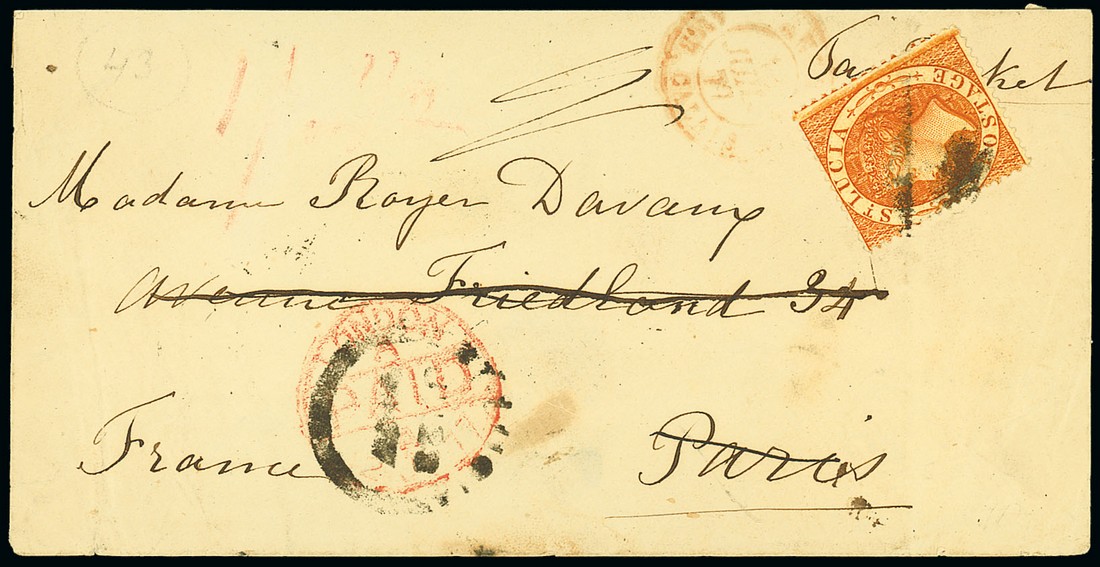 43
ST LUCIA
POSTAGE
Madame Royer Davaux
Avenue Friedland 34
LONDON
France
Paris